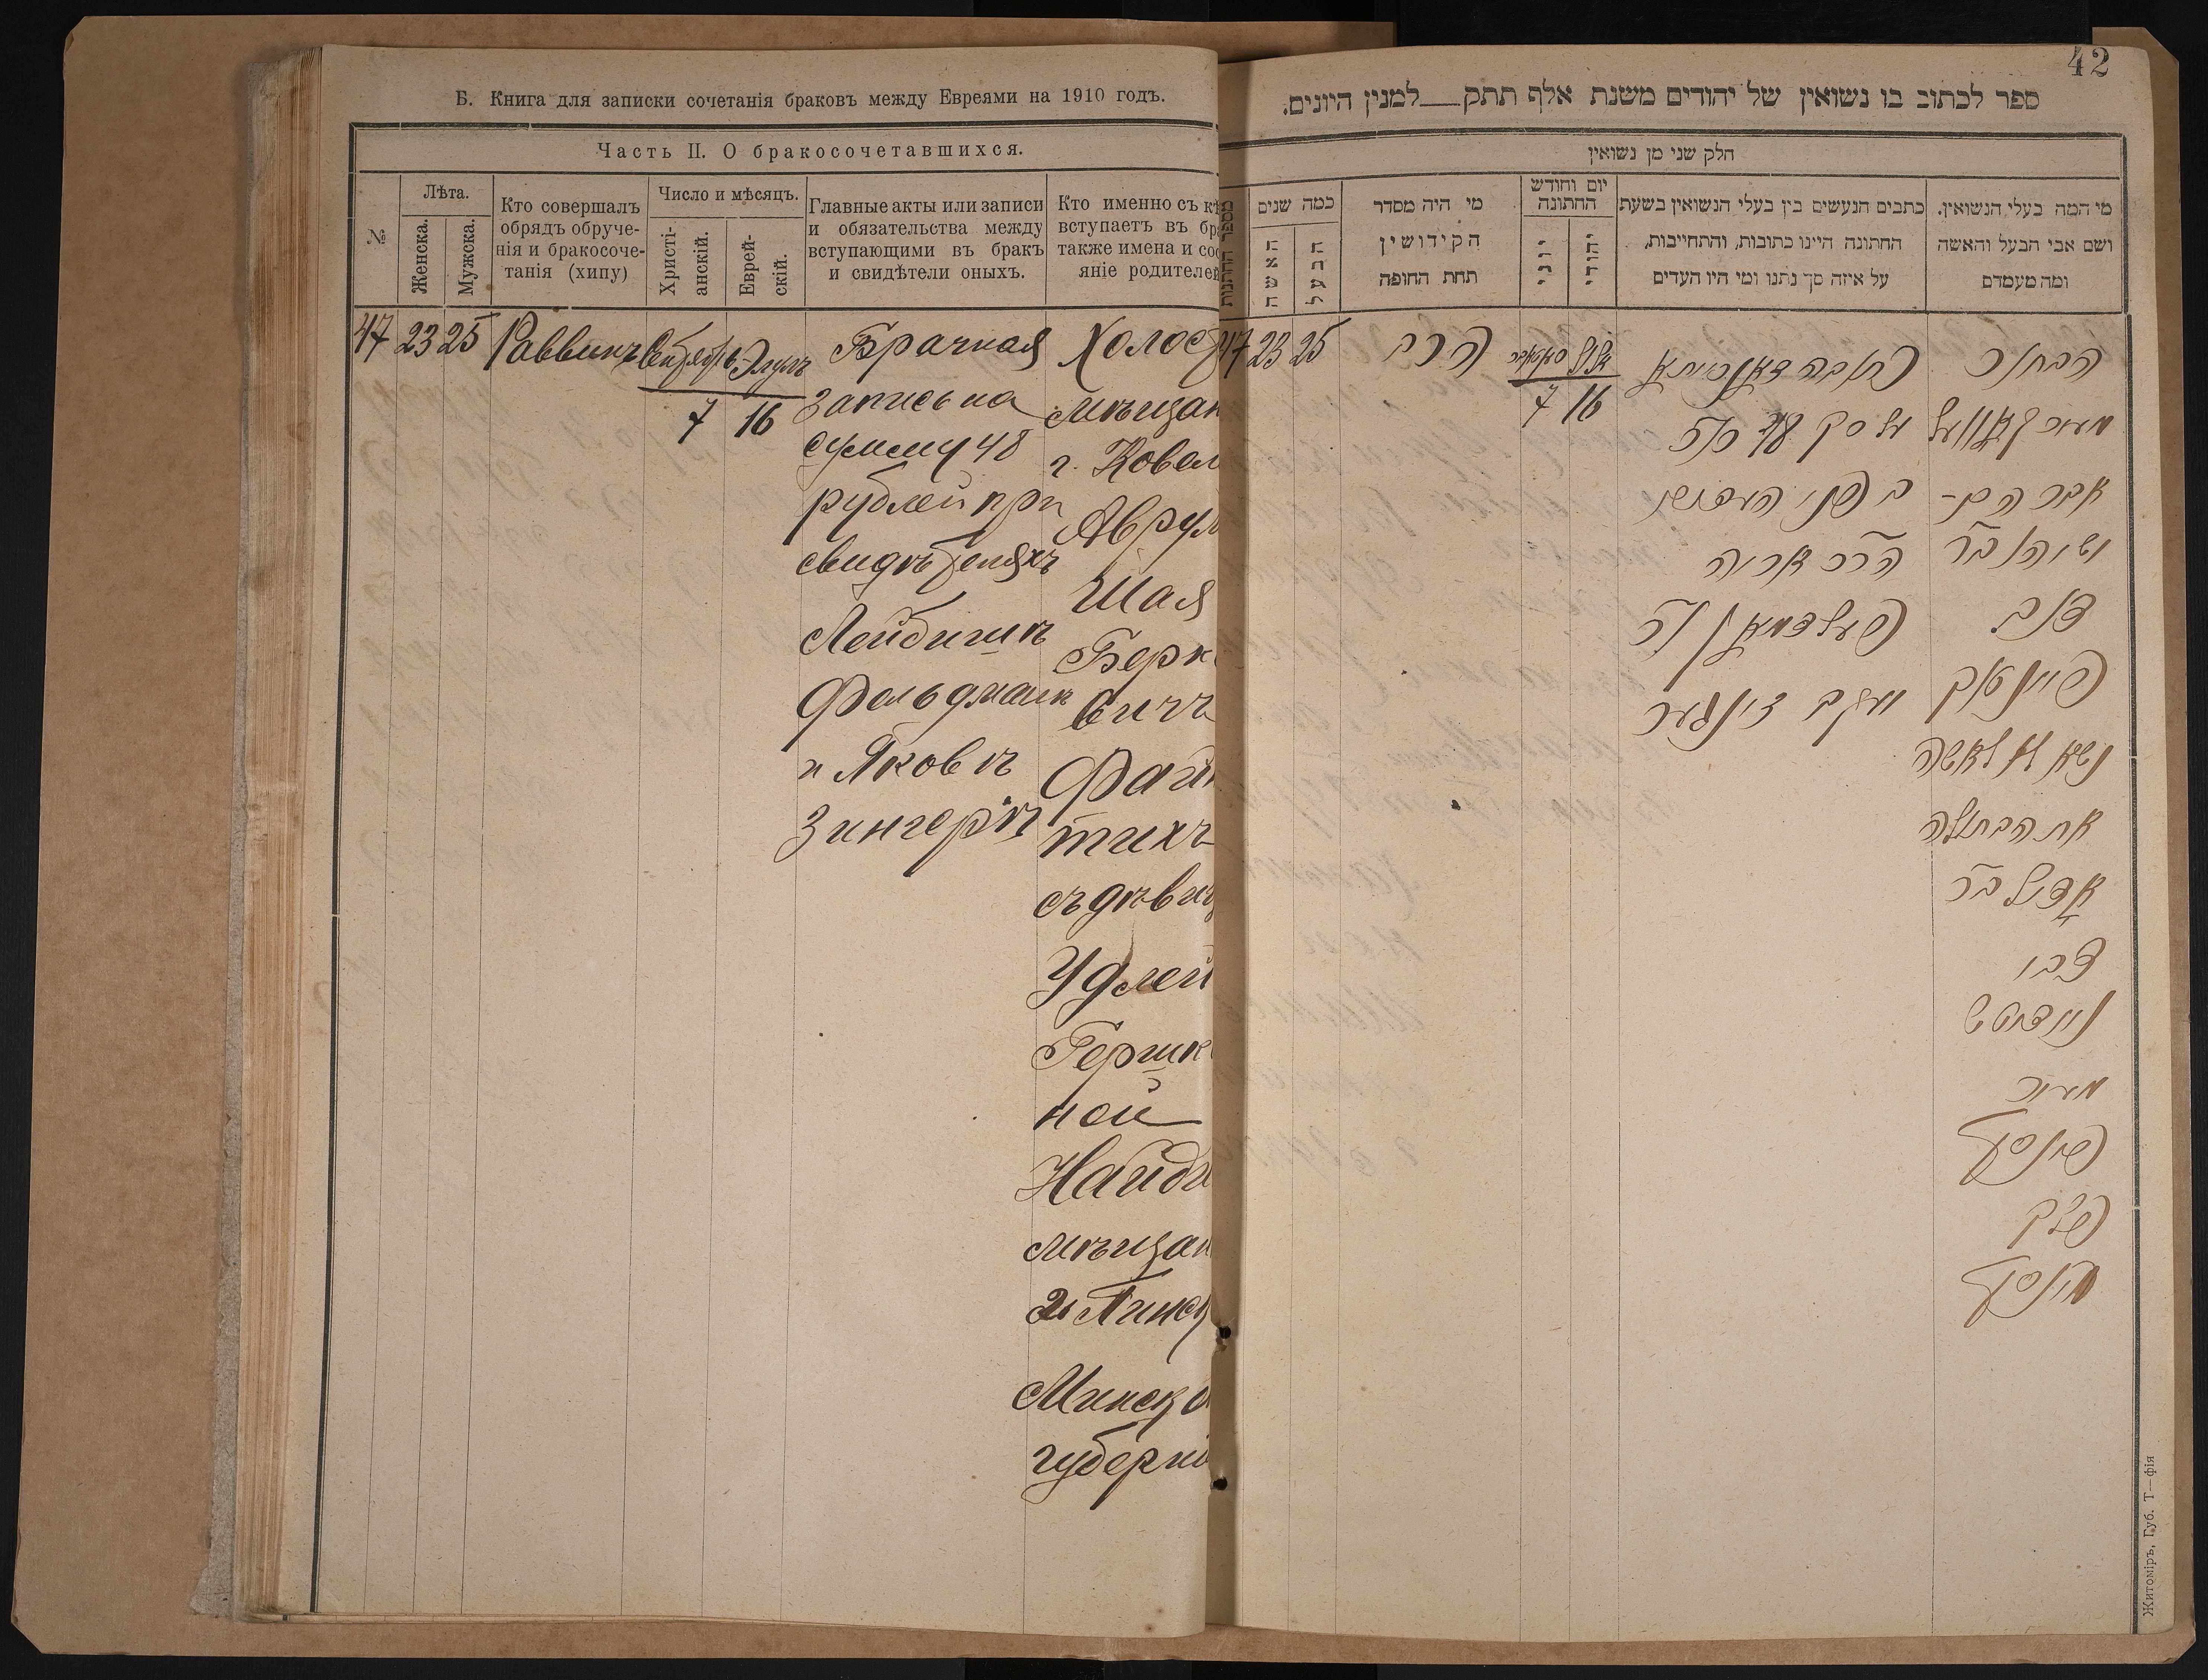 Б. Книга для записки сочетанія браковъ между Евреями на 1910 годъ.
Часть II. О бракосочетавшихся.
№
Лѣта.
Женска.
Мужска.
Кто совершалъ
обрядъ обруче-
нія и бракосоче-
танія (хипу)
Число и мѣсяцъ.
Христі-
анскій.
Еврей-
скій.
Главные акты или записи
и обязательства между
вступающими въ бракъ
и свидѣтели оныхъ.
Кто именно съ кѣ
вступаетъ въ бр
также имена и со
яніе родителей
47
23
25
Раввинъ
Сентябрь
7
Элулъ
16
Брачная
запись на
сумму 48
рублей при
свидѣтеляхъ
Лейбишѣ
Фельдманѣ
и Яковѣ
Зингерѣ
Холост
мѣщан
г. Ковел
Аврум
Шая
Берко
вичъ
Фай
тихъ
съ дѣвиц
Удлей
Гершк
ной
Найди
мѣщан
г. Пинск
Минско
губерні
42
ספר לכתוב בו נשואין של יהודים משנת אלף תתק למנין היונים.
חלק שני מן נשואין
מספר החתונות
כמה שנים
האשה
הבעל
מי היה מסדר
הקידושין
תחת החופה
יום וחודש
החתונה
יוני
יהודי
כתבים הנעשים בין בעלי הנשואין בשעת
החתונה היינו כתובות, והתחייבות,
על איזה סך נתנו ומי היו העדים
מי המה בעלי הנשואין.
ושם אבי הבעל והאשה
ומה מעמדם
47
23
25
הרב
7
אלול
16
כתובה דאורייתא
על סך 48 רוכ
בפני העדים
הרר אריה
פעלדמאן
יעקב זינגער
הבחור
מעיר קאוועל
אברהם-
ישיהו בר
דוב
נשא לו לאשה
את הבתולה
אדיל בר
צבי
מעיר
פינסק
פלך
מינסק
Житоміръ, Губ. Т—фія